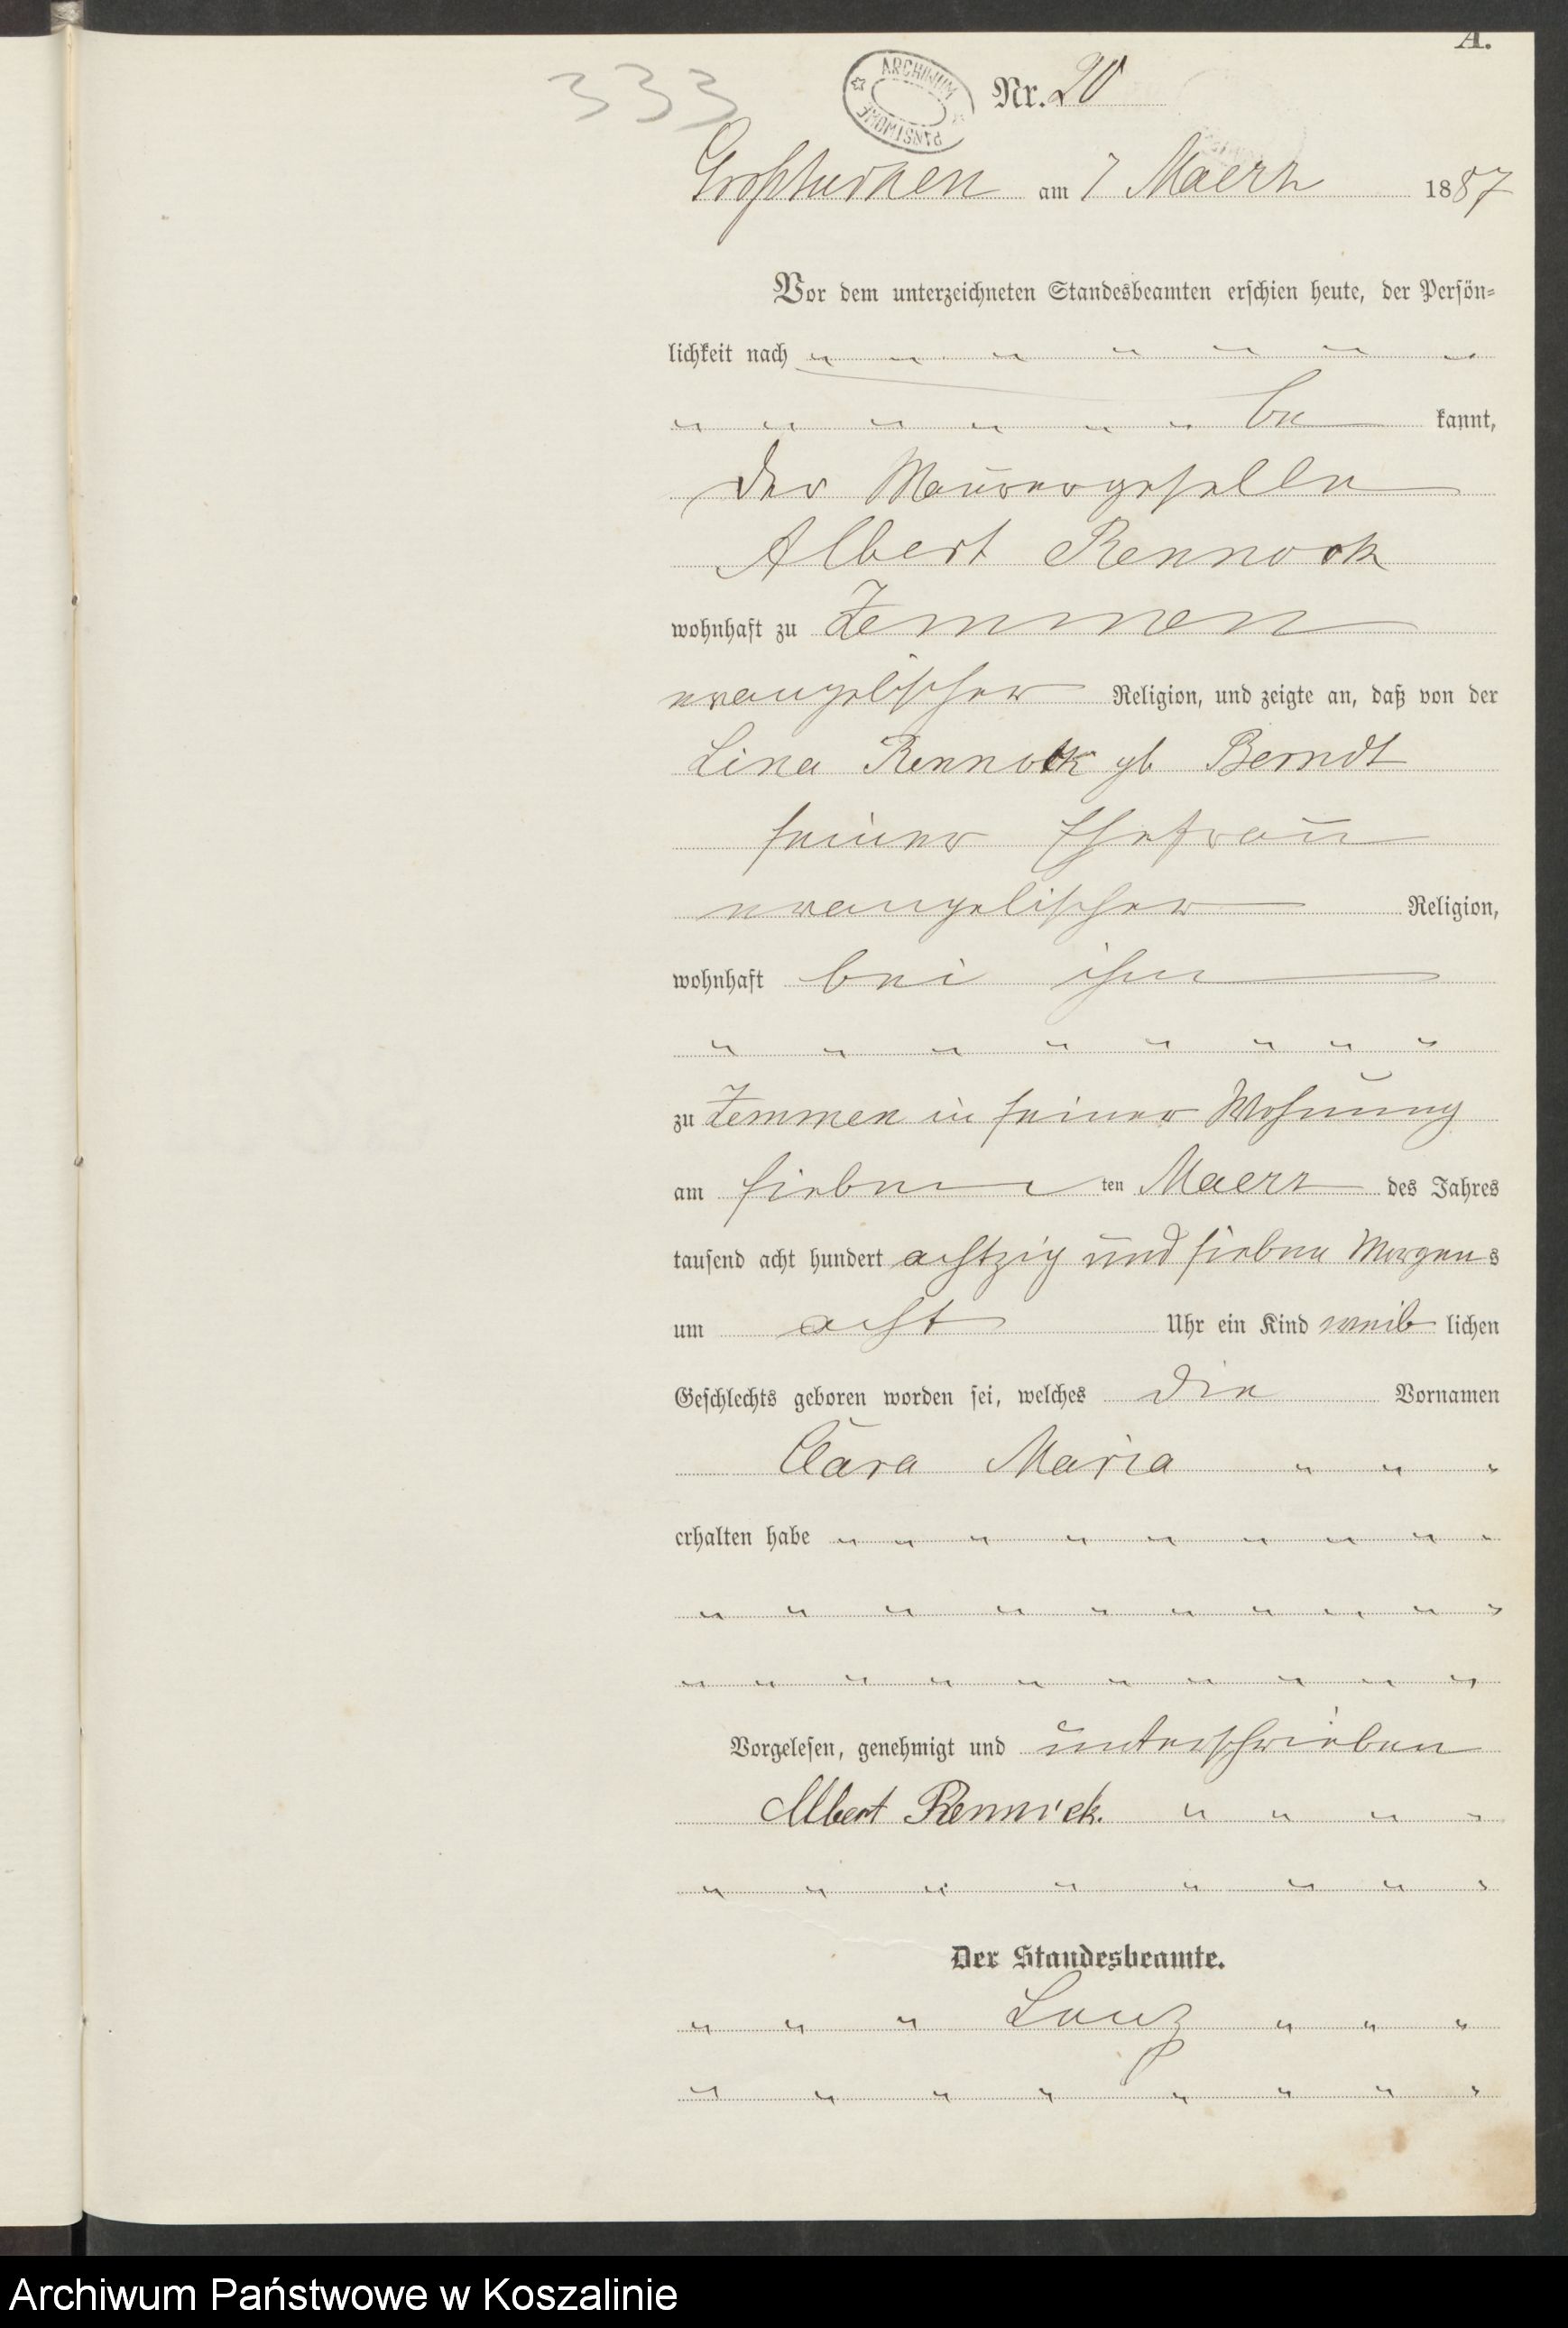 A.
333
ARCHIWUM PAŃSTWOWE
Nr. 20
Großtuchen am 7 Maerz 1887
Vor dem unterzeichneten Standesbeamten erschien heute, der Persön-
lichkeit nach " " " " " " "
" " " " " " be kannt,
der Maurergeselle
Albert Rennock
wohnhaft zu Zemmen
evangelischer Religion, und zeigte an, daß von der
Lina Rennock gb Berndt
seiner Ehefrau
evangelischer Religion,
wohnhaft bei ihm
" " " " " " " "
zu Zemmen in seiner Wohnung
am sieben ten Maerz des Jahres
tausend acht hundert achtzig und sieben Morgens
um acht Uhr ein Kind weib lichen
Geschlechts geboren worden sei, welches die Vornamen
Clara Maria " " "
erhalten habe " " " " " " " "
" " " " " " " " " "
" " " " " " " " " "
Vorgelesen, genehmigt und unterschrieben
Albert Rennick. " " " "
" " " " " " " "
Der Standesbeamte.
" " " " " "
" " " " " " " "
Archiwum Państwowe w Koszalinie